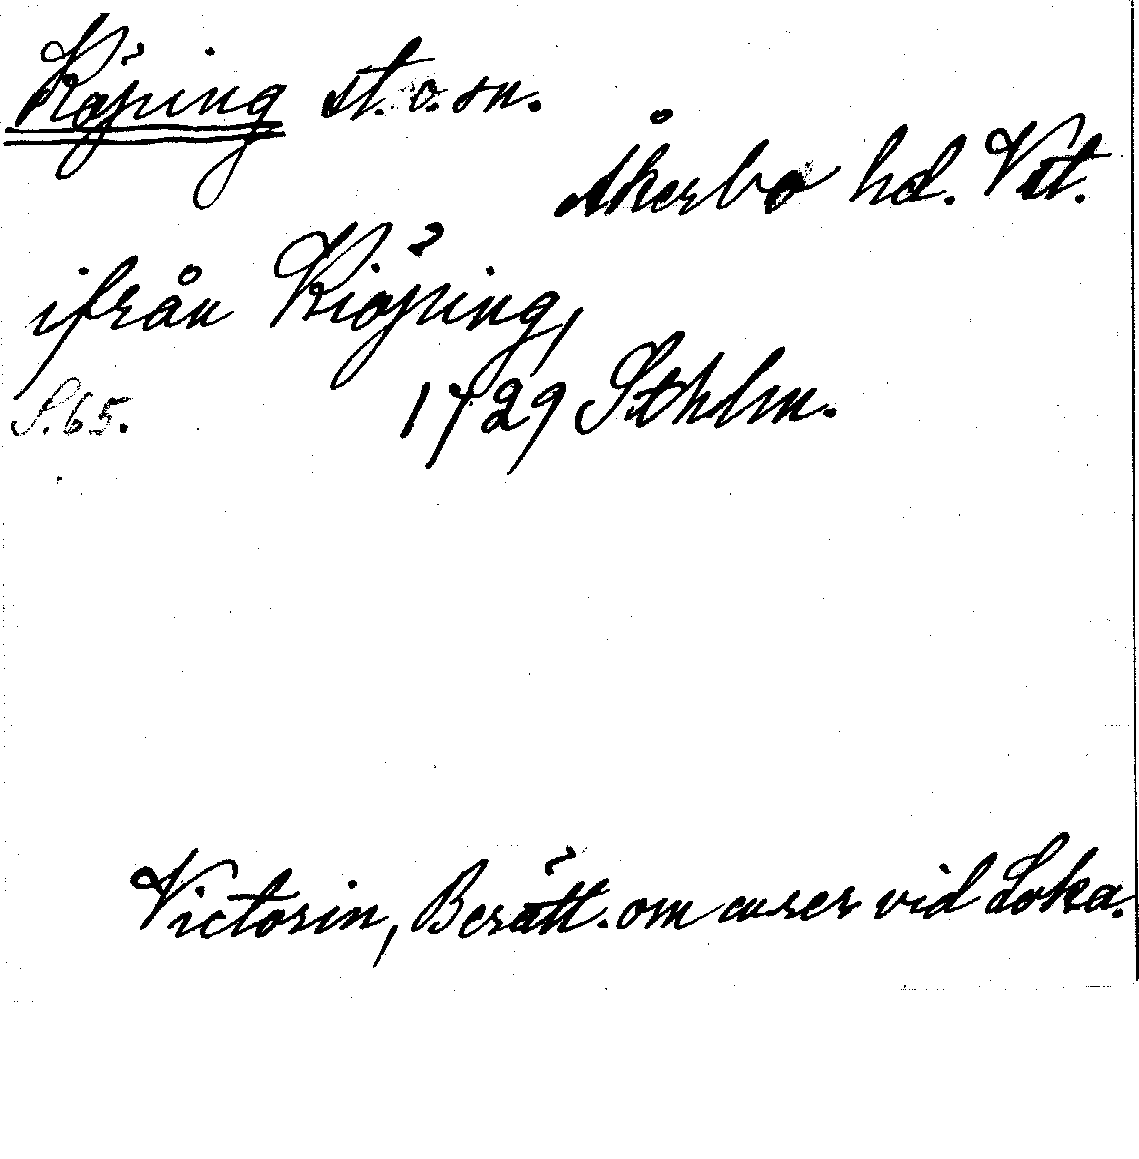 Köping st. o. sn.
Åkerbo hd. Vst.
ifrån Kiöping,
S. 65. 1729 Sthlm.
Victorin, Berätt. om curer vid Loka.